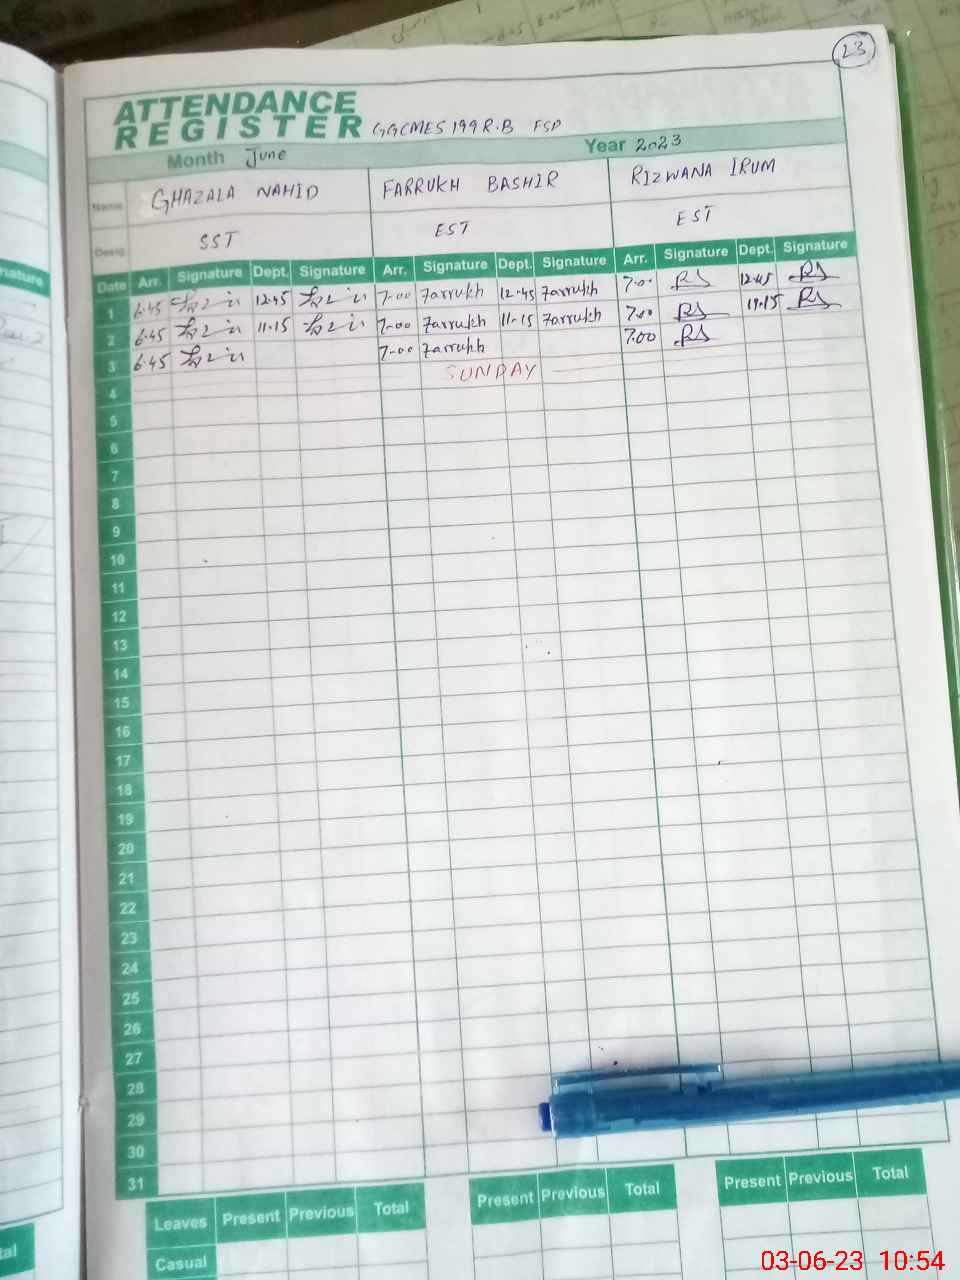 23
ATTENDANCE
REGISTER GGCMES 199 R.B FSD
Month June Year 2023
Name GHAZALA NAHID FARRUKH BASHIR RIZWANA IRUM
Desig. SST EST EST
Date Arr. Signature Dept. Signature Arr. Signature Dept. Signature Arr. Signature Dept. Signature
1 6.45 12.45 7.00 Farrukh 12.45 Farrukh 7.00 RS 12.45 RS
2 6.45 11.15 7.00 Farrukh 11.15 Farrukh 7.00 RS 11.15 RS
3 6.45 7.00 Farrukh 7.00 RS
4 SUNDAY
5
6
7
8
9
10
11
12
13
14
15
16
17
18
19
20
21
22
23
24
25
26
27
28
29
30
31
Leaves Present Previous Total Present Previous Total Present Previous Total
Casual
03-06-23 10:54